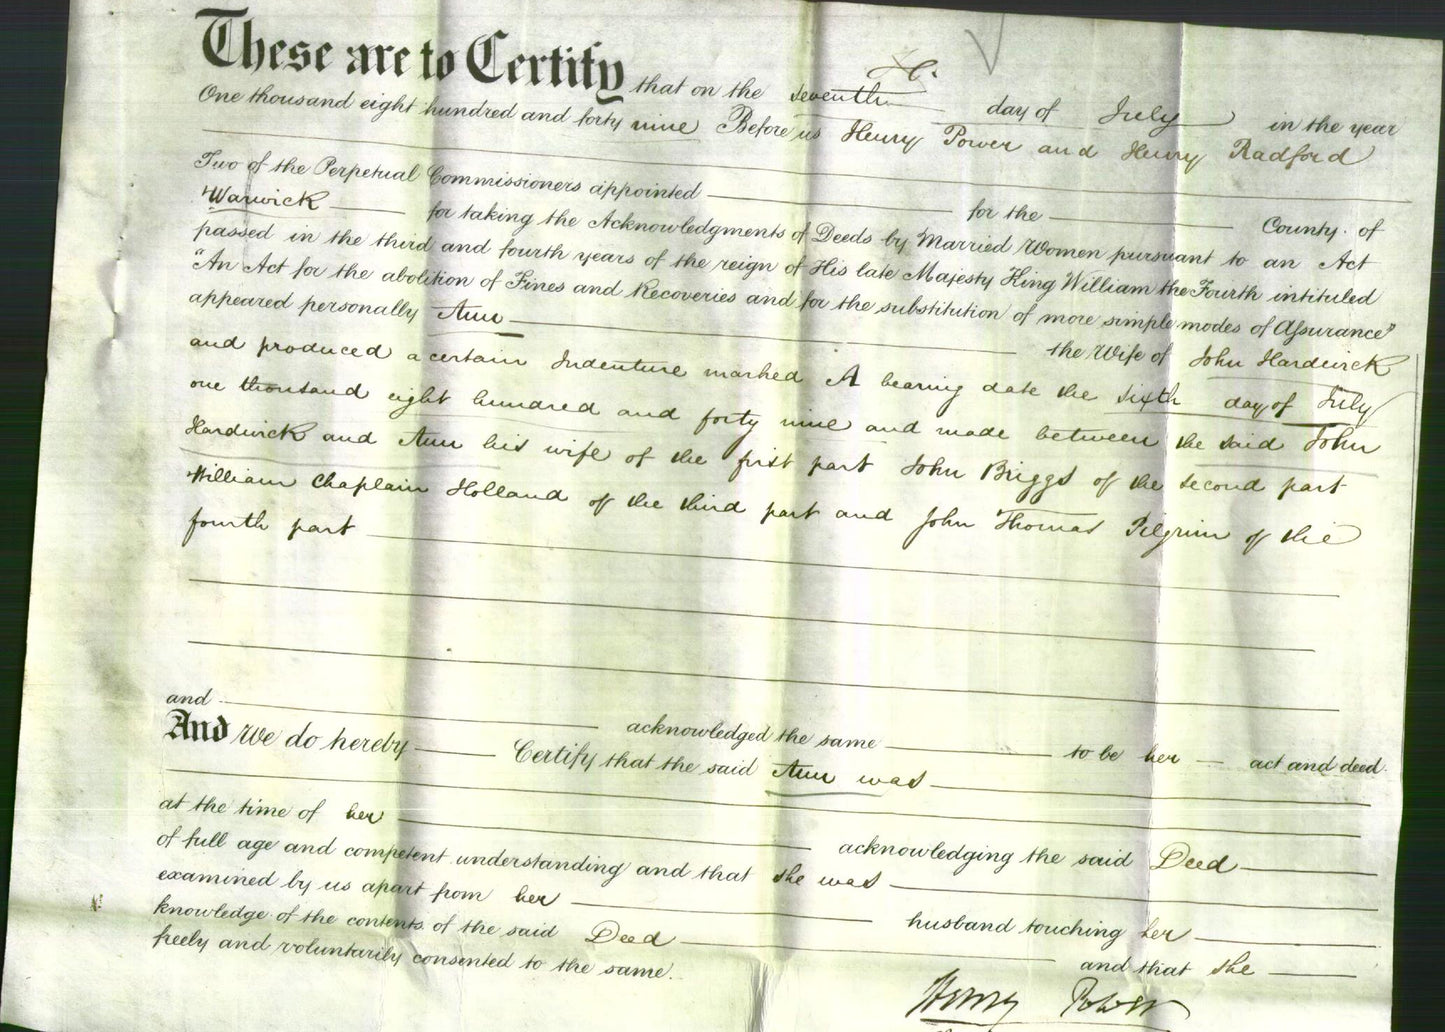 These are to Certify that on the seventh day of July in the year
One thousand eight hundred and forty nine Before us Henry Power and Henry Radford
Two of the Perpetual Commissioners appointed for the County of
Warwick for taking the Acknowledgments of Deeds by Married Women pursuant to an Act
passed in the third and fourth years of the reign of His late Majesty King William the Fourth intituled
"An Act for the abolition of Fines and Recoveries and for the substitution of more simple modes of Assurance"
appeared personally Ann the Wife of John Hardwick
and produced a certain Indenture marked A bearing date the sixth day of July
one thousand eight hundred and forty nine and made between the said John
Hardwick and Ann his wife of the first part John Briggs of the second part
William Chaplain Holland of the third part and John Thomas Pilgrim of the
fourth part
and acknowledged the same to be her act and deed.
And We do hereby Certify that the said Ann was
at the time of her acknowledging the said Deed
of full age and competent understanding and that she was
examined by us apart from her husband touching her
knowledge of the contents of the said Deed and that she
freely and voluntarily consented to the same.
Henry Power